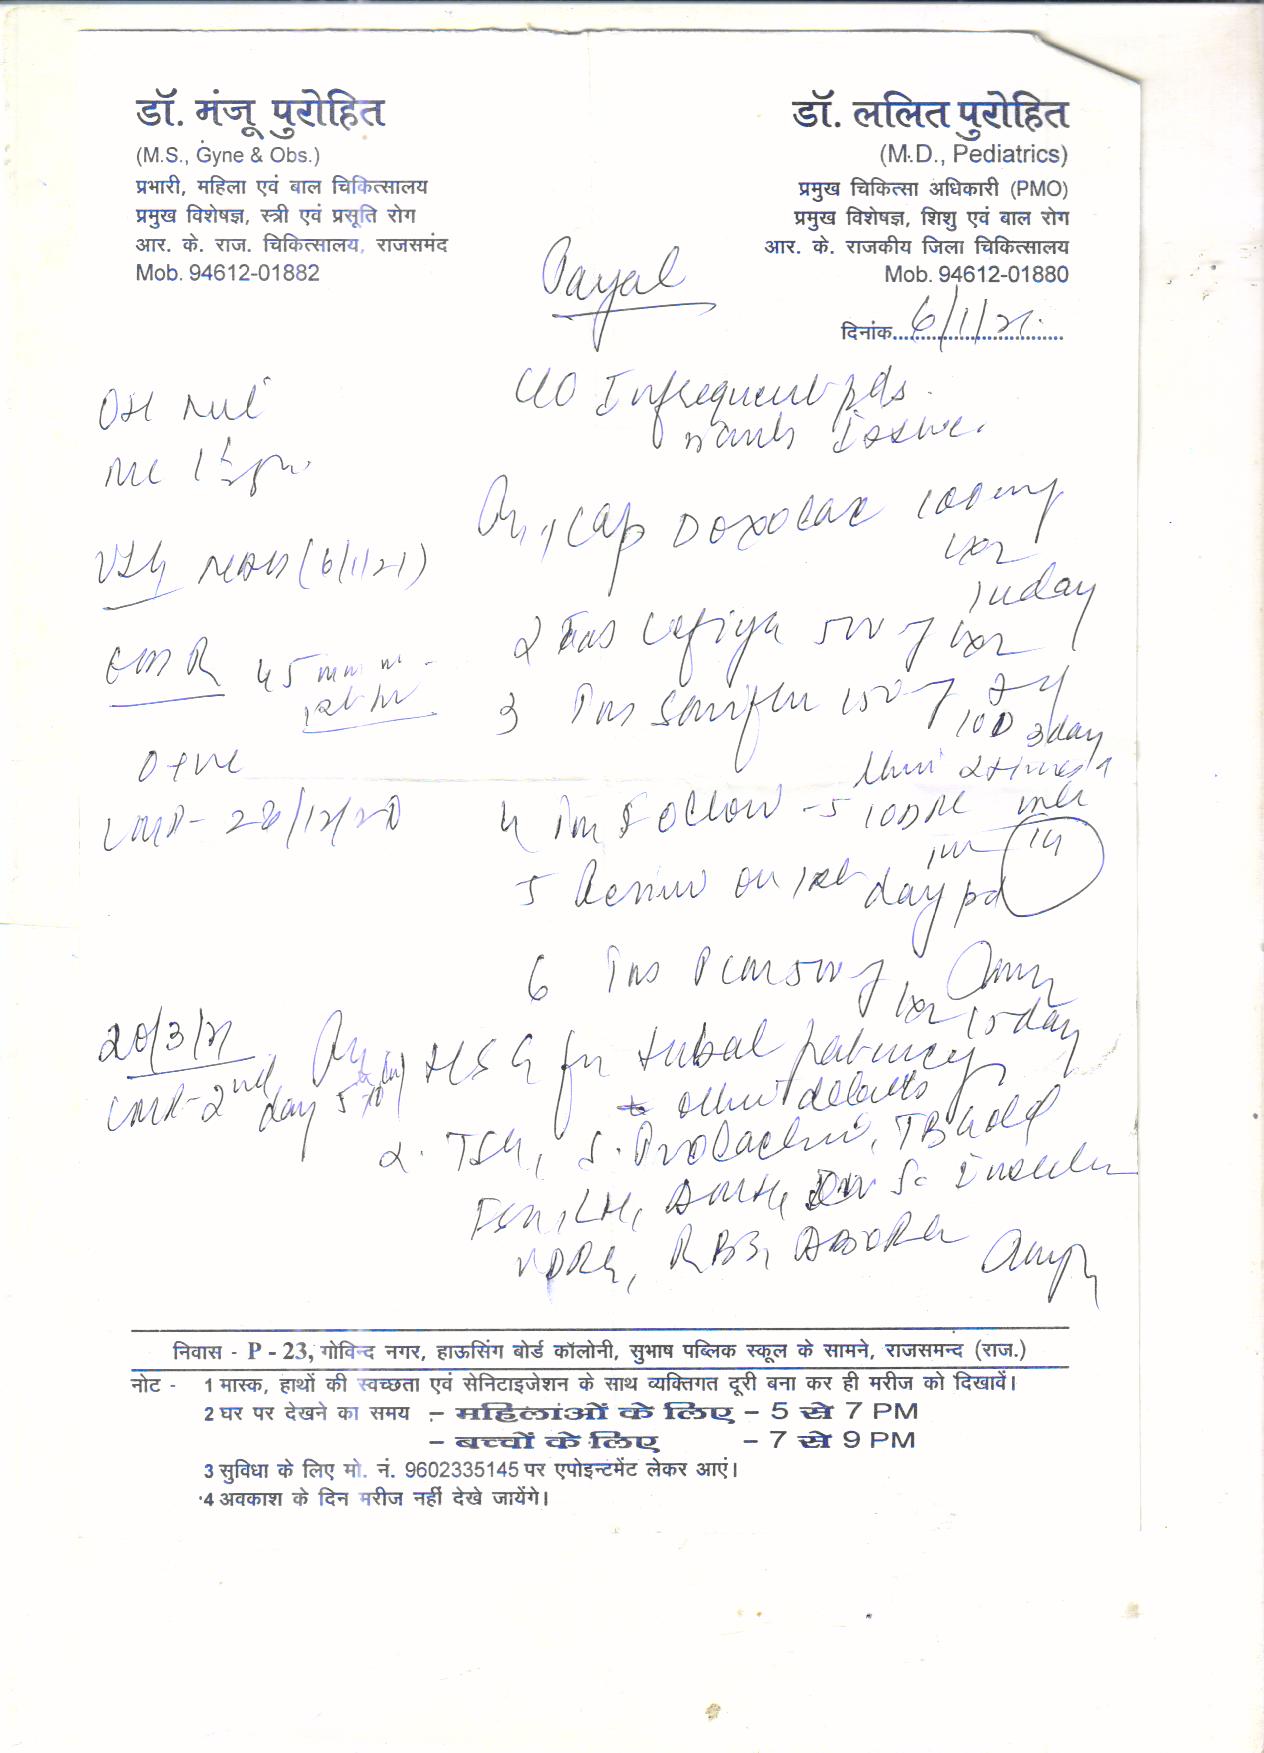 डॉ. मंजू पुरोहित
(M.S., Gyne & Obs.)
प्रभारी, महिला एवं बाल चिकित्सालय
प्रमुख विशेषज्ञ, स्त्री एवं प्रसूति रोग
आर. के. राज. चिकित्सालय, राजसमंद
Mob. 94612-01882
डॉ. ललित पुरोहित
(M.D., Pediatrics)
प्रमुख चिकित्सा अधिकारी (PMO)
प्रमुख विशेषज्ञ, शिशु एवं बाल रोग
आर. के. राजकीय जिला चिकित्सालय
Mob. 94612-01880
Payal
दिनांक 6/1/21
C/O Infrequent pds.
wants Issue.
OH Nul
ML 1½ yr
USG (6/1/21)
ESR 45 mm
1st hr
O+ve
LMP - 28/12/20
1 Cap Doxolac 100mg
1x2
14 day
2 500 1x2
3 150
3 day
4
5 Review on 1st day pd
6 500
1x2 15 day
20/3/21
LMP - 2nd day
HSG for tubal patency
other defects
2. TSH, S. Prolactin, TB Gold
FSH, LH, AMH, S. Insulin
VDRL, RBS, ABORh
निवास - P - 23, गोविन्द नगर, हाऊसिंग बोर्ड कॉलोनी, सुभाष पब्लिक स्कूल के सामने, राजसमन्द (राज.)
नोट - 1 मास्क, हाथों की स्वच्छता एवं सेनिटाइजेशन के साथ व्यक्तिगत दूरी बना कर ही मरीज को दिखावें।
2 घर पर देखने का समय :- महिलाओं के लिए - 5 से 7 PM
- बच्चों के लिए - 7 से 9 PM
3 सुविधा के लिए मो. नं. 9602335145 पर एपोइन्टमेंट लेकर आएं।
4 अवकाश के दिन मरीज नहीं देखे जायेंगे।